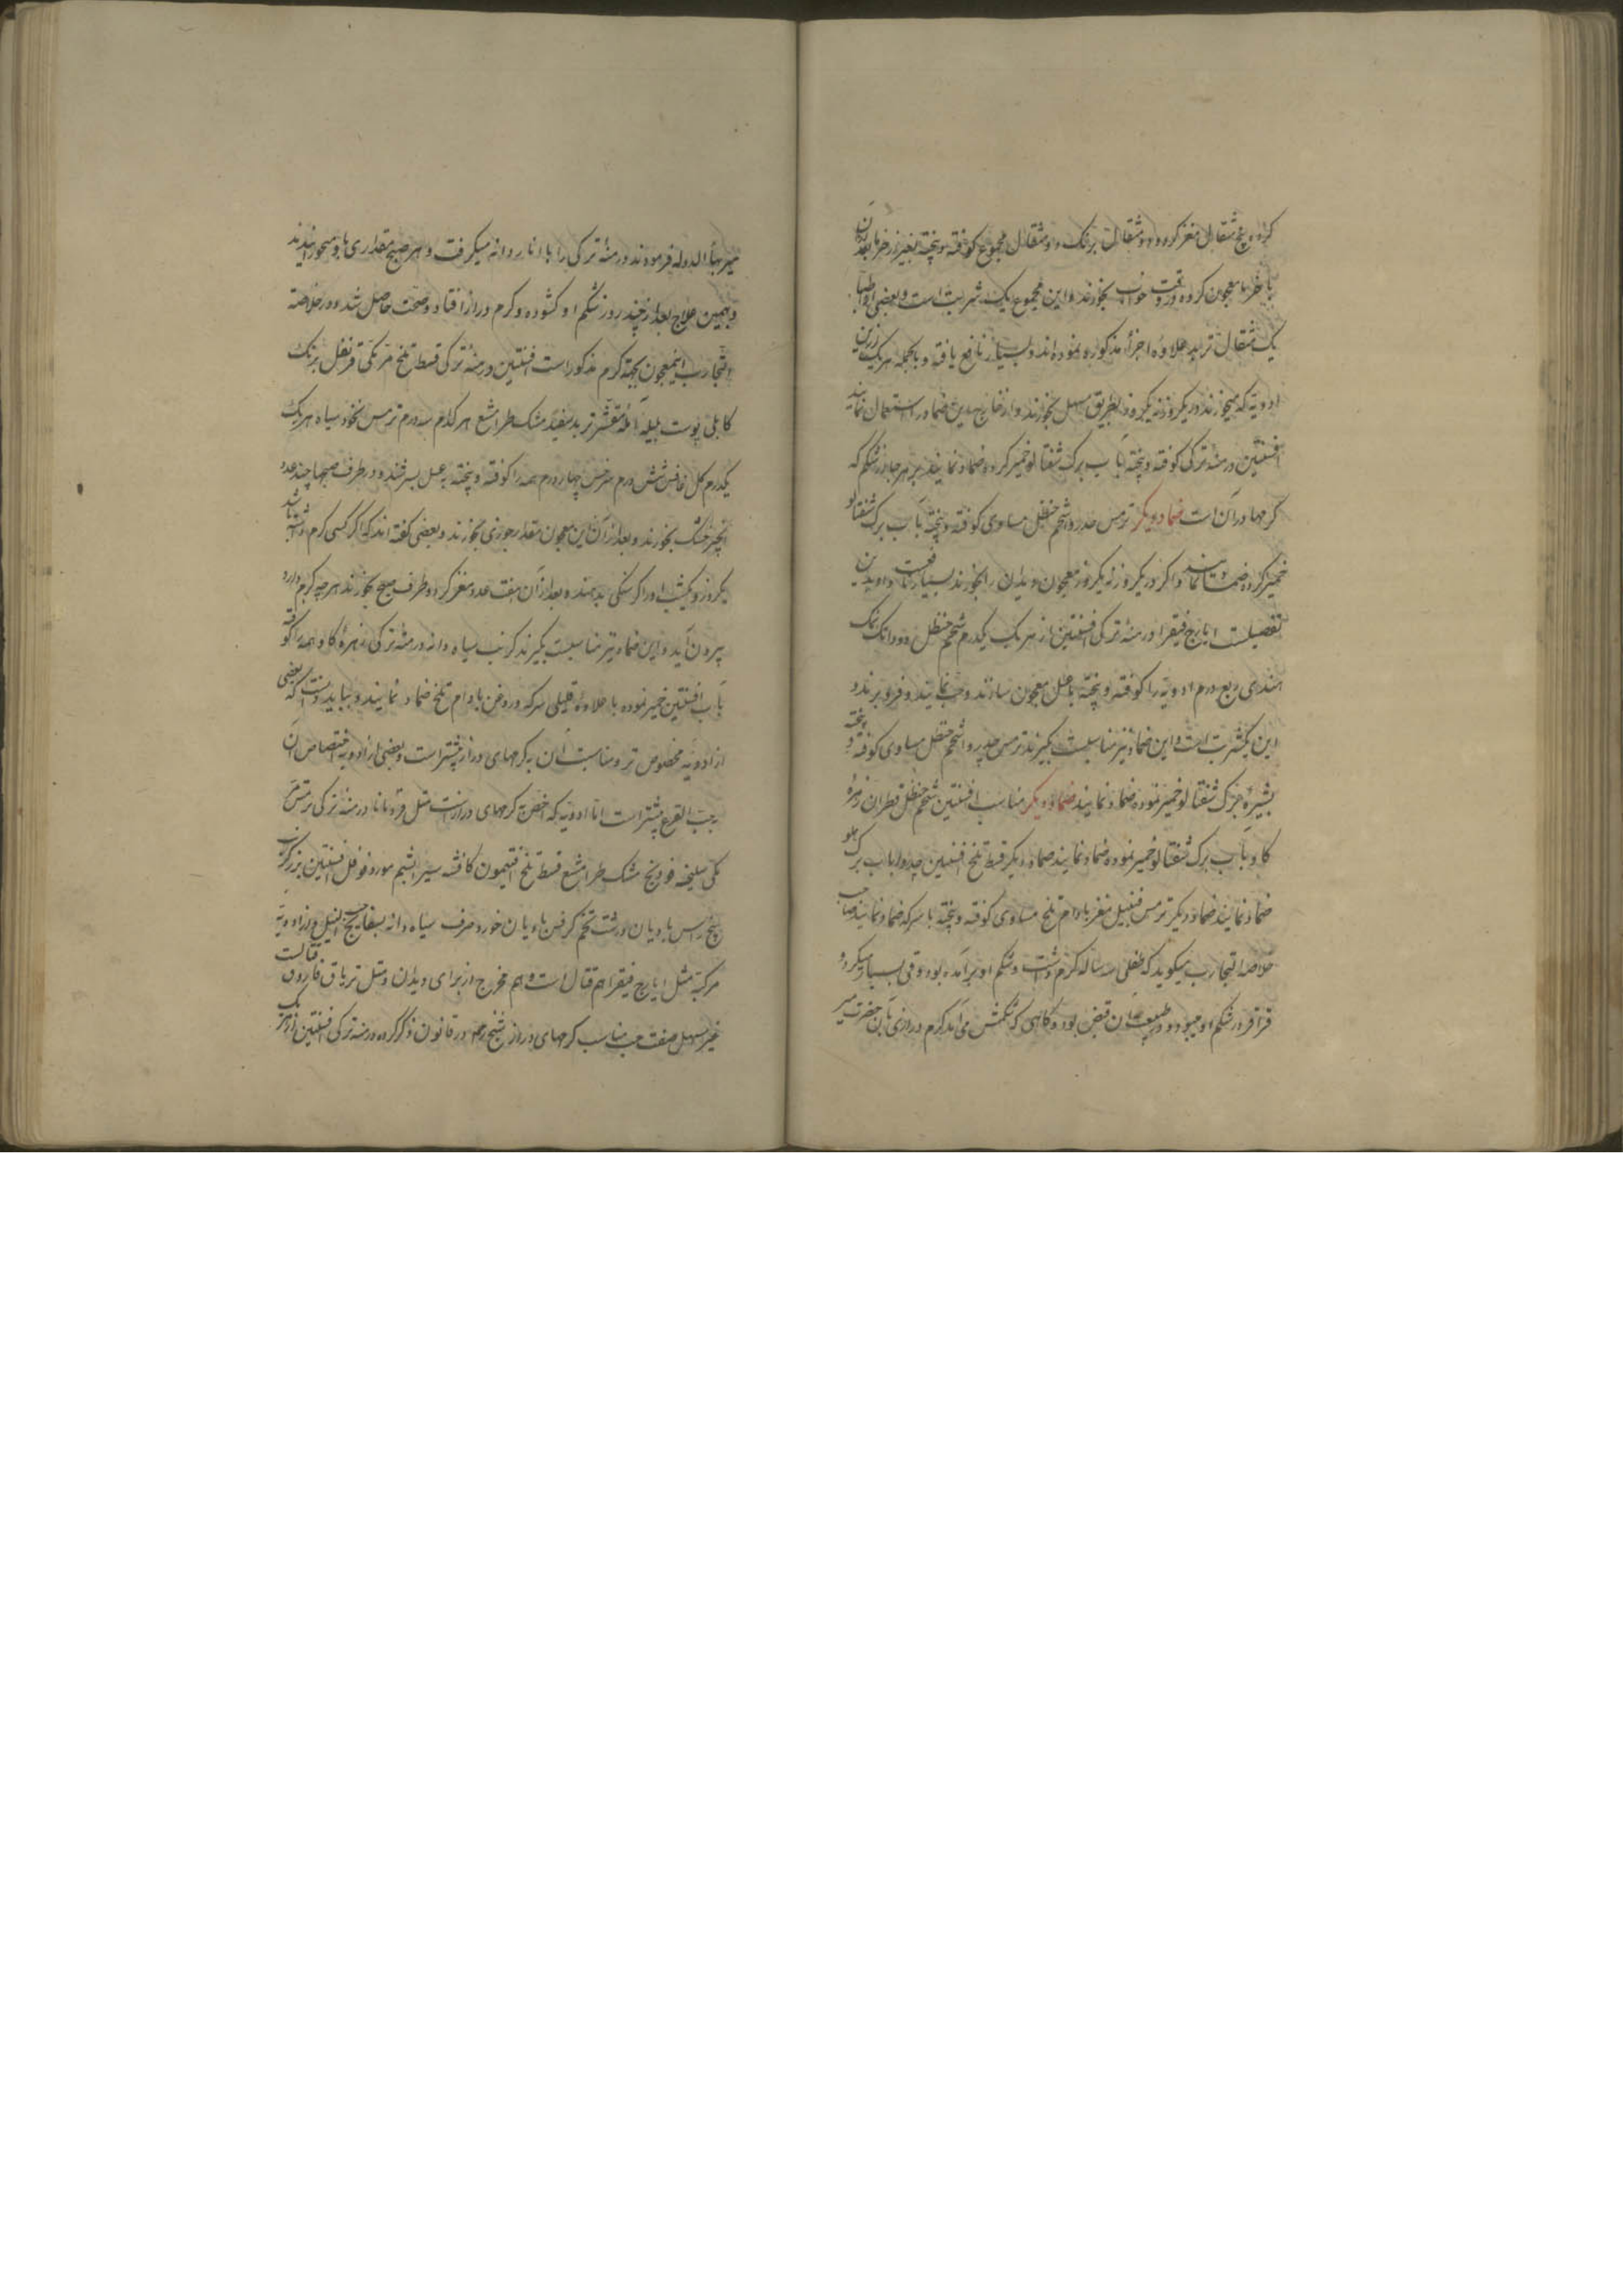 کرده پنج مثقال مغز کردو دو مثقال برنک دو مثقال مجموع کوفته و پخته بغیر از خرما بعد از آن
با خرما معجون کرده در وقت خواب بخورند و این مجموع یک شربت است و بعضی اطبا
یک مثقال تربد علاوه اجزاء مذکوره نموده اند و بسیار نافع یافته و بالجمله هر یک از این
ادویه که میخورند در یکروز نه یکروز بطریق سهل بخورند و از خارج بدین ضماد استعمال نمایند
افسنتین درمنه ترکی کوفته و پخته بآب برک شفتالو خمیر کرده ضماد نمایند بر هر جا از شکم که
کرمها در آن است ضماد دیکر ترمس شحم حنظل مساوی کوفته و پخته بآب برک شفتالو
خمیر کرده ضماد نمایند و اکر در یکروز نه یکروز معجون دیدان را بخورند بسیار نافعست و ادویه این
تفصیلست ایارج فیقرا درمنه ترکی افسنتین از هر یک یکدرم شحم حنظل دو دانک نمک
هندی ربع درم ادویه را کوفته و پخته با عسل معجون سازند و حب نمایند و فرو برند و
این یکشربت است و این ضماد نیز مناسبست بکیرند ترمس شحم حنظل مساوی کوفته و پخته
بشیره برک شفتالو خمیر نموده ضماد نمایند ضماد دیکر مناسب افسنتین شحم حنظل قطران زهره
کاو بآب برک شفتالو خمیر نموده ضماد نمایند ضماد دیکر قسط تلخ افسنتین بآب برک
ضماد نمایند ضماد دیکر ترمس مغز بادام تلخ مساوی کوفته و پخته با سرکه ضماد نمایند صاحب
خلاصه التجارب میکوید که طفلی سه ساله کرم داشت و شکم او برآمده بود و قی بسیار میکرد و
قراقر در شکم او میبود و در طبیعت آن قبض بود و کاهی که شکمش می آمد کرم درازی بآن حضرت میر
میر بهاء الدوله فرمودند درمنه ترکی را با انار دانه میکرفت و هر صبح مقداری باو میخورانیدند
و بهمین علاج بعد از چند روز شکم او کشوده و کرم دراز افتاد و صحت حاصل شد و در خلاصه
التجارب اینمعجون بجهة کرم مذکور است افسنتین درمنه ترکی قسط تلخ قرنفل برنک
کابلی پوست بلیله آمله مقشر تربد سفید مشک طرامشع هر کدام سه درم ترمس نخود سیاه هر یک
یکدرم شش درم سرخس چهار درم همه را کوفته و پخته به عسل بسرشند و در طرف صبحها چند عدد
انجیر خشک بخورند و بعد از آن این معجون مقدار جوزی بخورند و بعضی کفته اند که اکر کسی کرم داشته باشد
یکروز و یکشب او را کرسنکی بدهند و بعد از آن هفت عدد مغز کردو طرف صبح بخورند هر چه کرم دارد
بیرون آید و این ضماد نیز مناسبست بکیرند کرنب سیاه دانه درمنه ترکی زهره کاو همه را کوفته
بآب افسنتین خمیر نموده با علاوه قلیلی سرکه و روغن بادام تلخ ضماد نمایند و بباید دانست که بعضی
از ادویه مخصوص تر و مناسبت آن به کرمهای دراز بیشتر است و بعضی از ادویه اختصاص آن
بحب القرع بیشتر است اما ادویه که اخص کرمهای درازست مثل درمنه ترکی ترمس
سلیخه فودنج مشک طرامشع قسط تلخ افتیمون کاشم سیر افسنتین
بیخ راس بادیان درشت تخم کرفس بادیان خورد حرف سیاه دانه بسفایج حب النیل و از ادویه
مرکبه مثل ایارج فیقرا هم قتال است و هم مخرج از برای دیدان و مثل تریاق فاروق قتالست
غیر مسهل صفت حب مناسب کرمهای دراز شیخ در قانون ذکر کرده درمنه ترکی افسنتین از هر یک